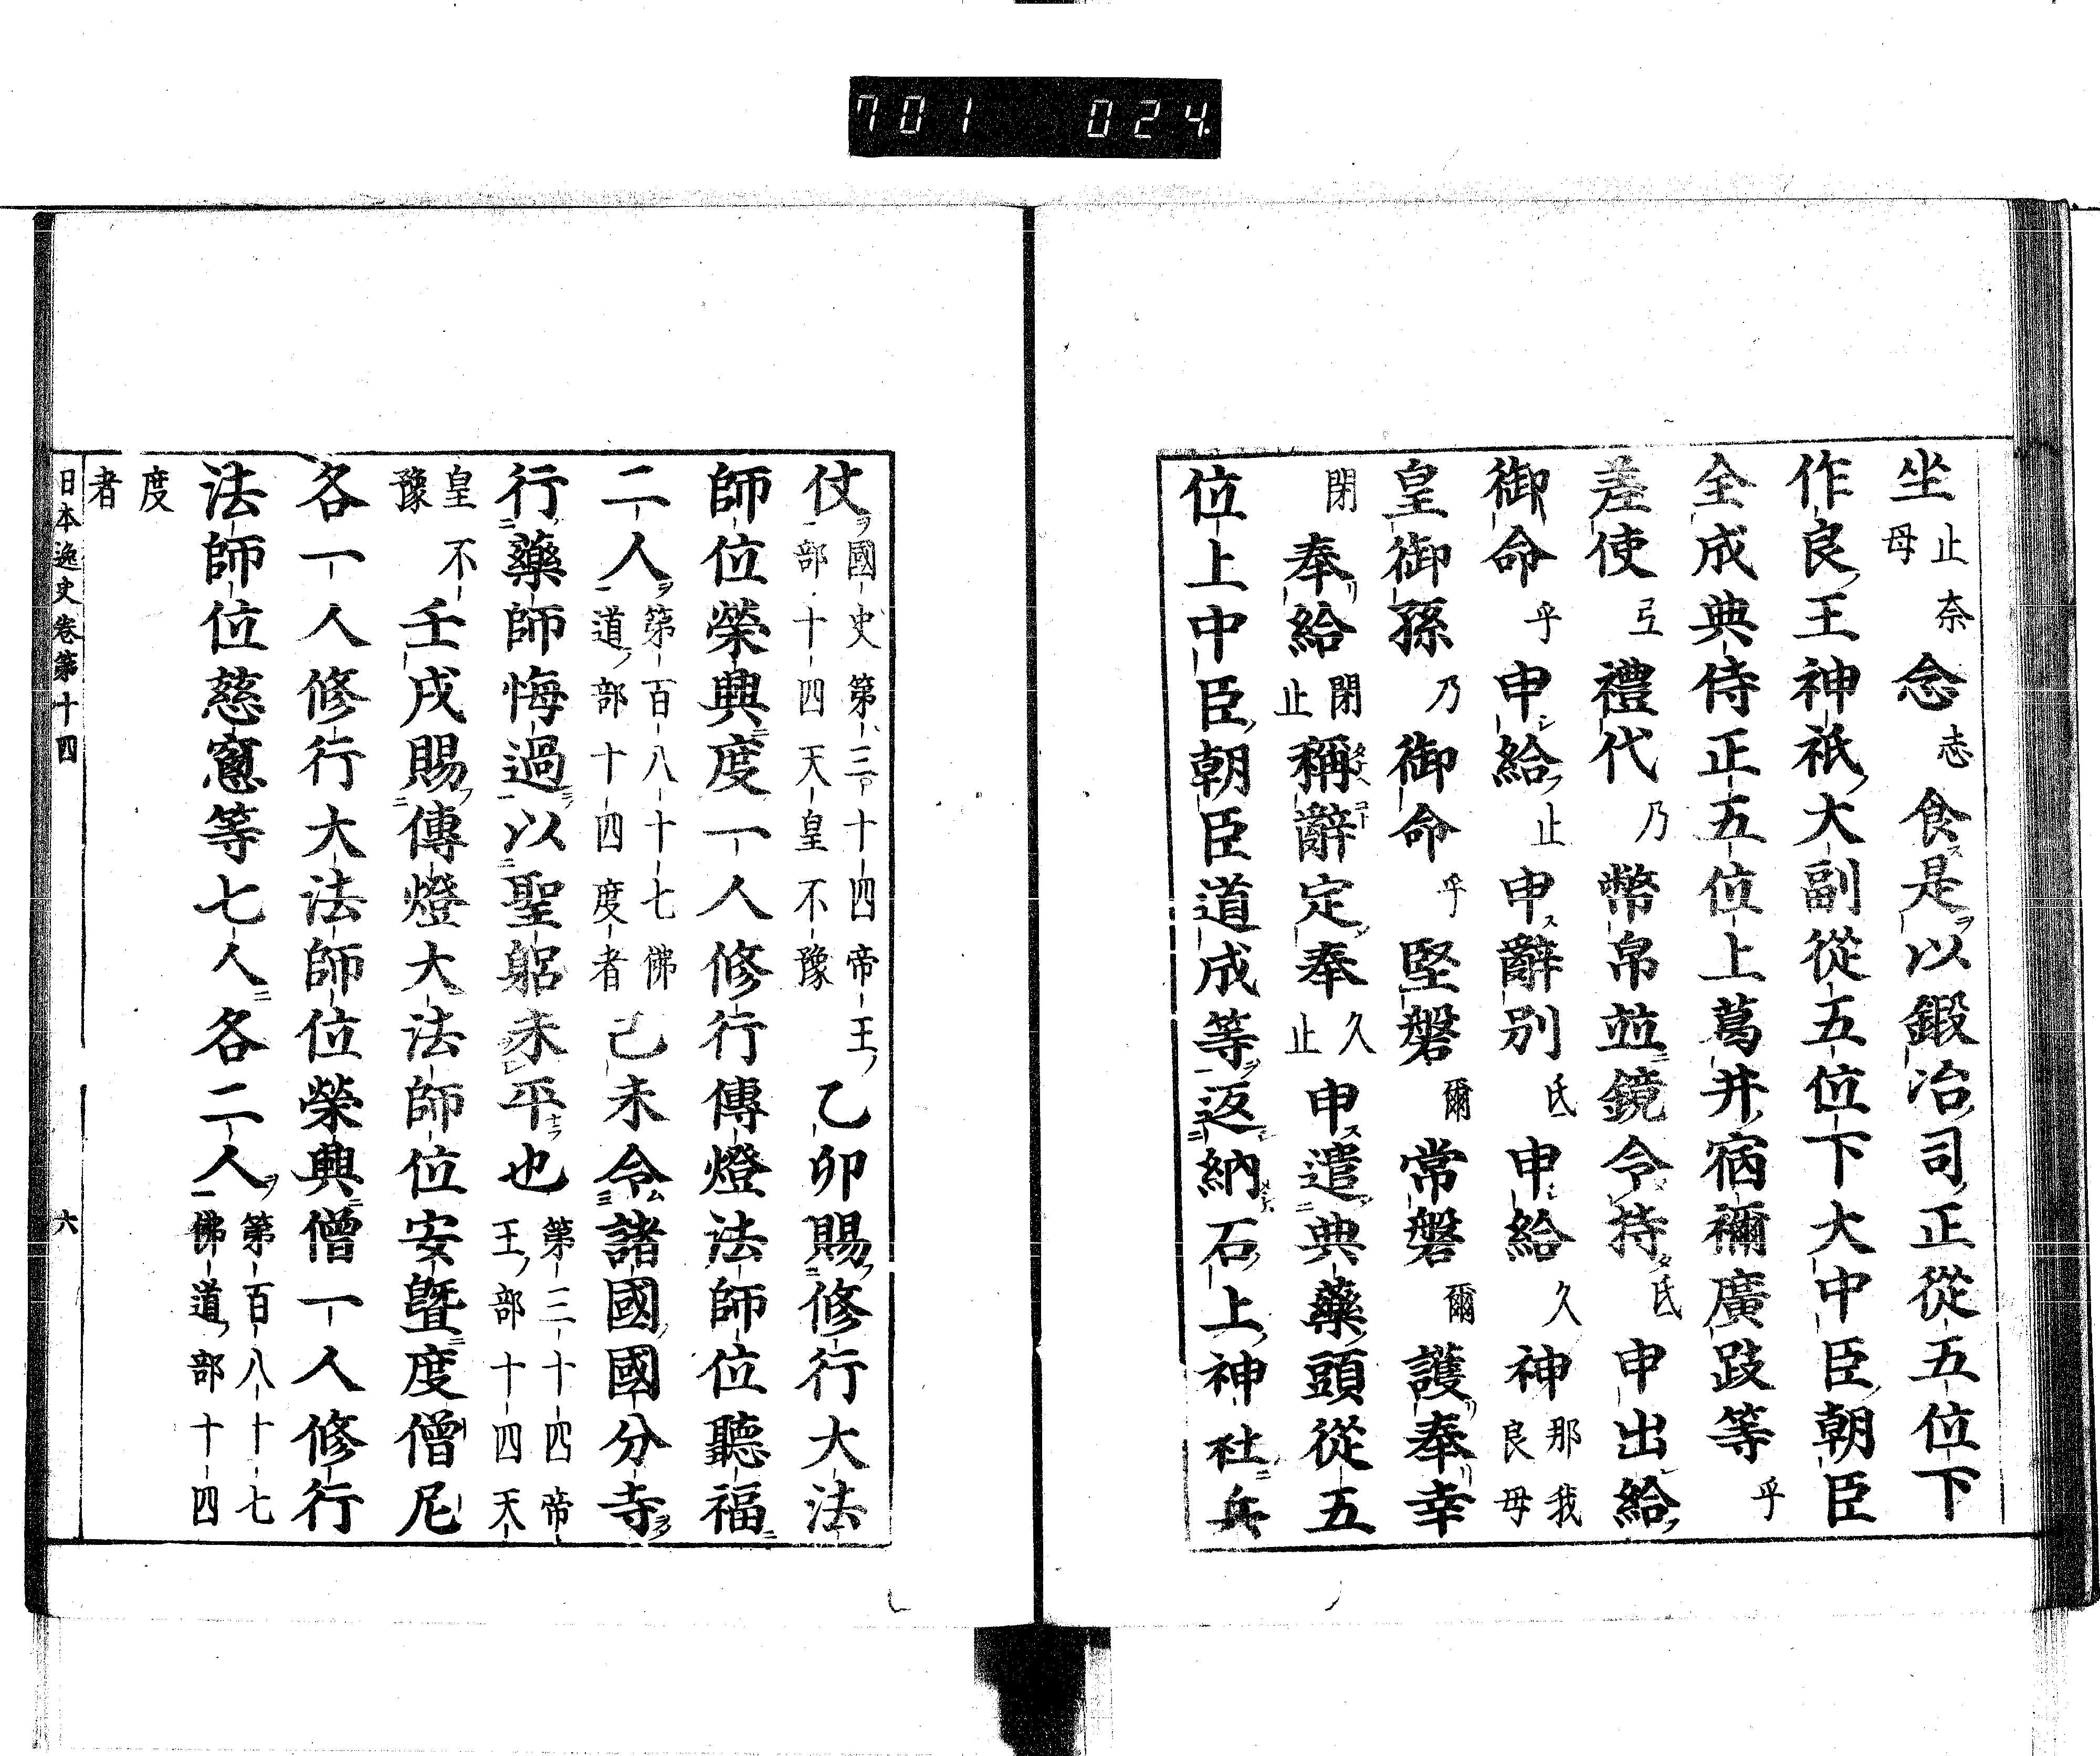 701 024
坐止母奈念志食是以鍛冶司正從五位下
作良王神祇大副從五位下大中臣朝臣
全成典侍正五位上葛井宿禰廣跂等乎
差使弖禮代乃幣帛竝鏡令持氐申出給
御命乎申給止申辭別氐申給久神那我良母
皇御孫乃御命乎堅磐爾常磐爾護奉幸
閉奉給閉止稱辭定奉久止申遣典藥頭從五
位上中臣朝臣道成等返納石上神社兵
仗國史第三十四帝王部十四天皇不豫乙卯賜修行大法
師位榮興度一人修行傳燈法師位聽福
二人第百八十七佛道部十四度者己未令諸國國分寺
行藥師悔過以聖躬未平也第三十四帝王部十四天
皇不豫壬戌賜傳燈大法師位安曁度僧尼
各一人修行大法師位榮興僧一人修行
法師位慈窻等七人各二人第百八十七佛道部十四
度者
日本逸史卷第十四 六